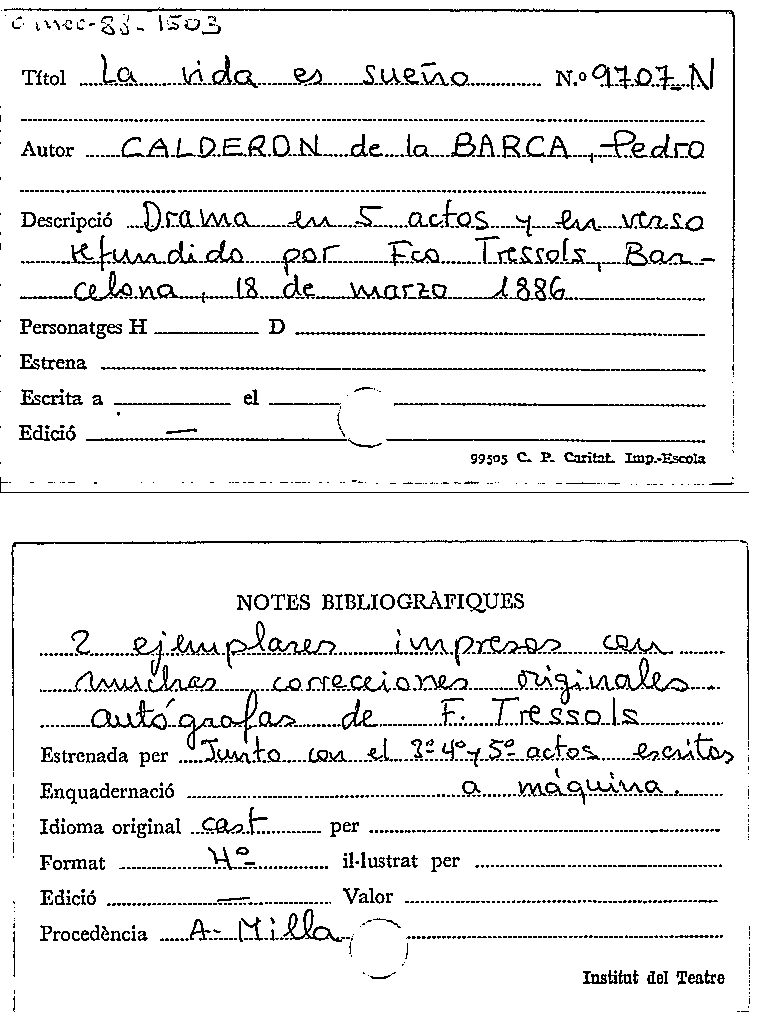 C mec-83-1503
Títol La vida es sueño N.º 9707-N
Autor CALDERON de la BARCA, Pedro
Descripció Drama en 5 actos y en verso
refundido por Fco Tressols, Bar-
celona, 18 de marzo 1886
Personatges H D
Estrena
Escrita a el
Edició —
99505 C. P. Caritat. Imp.-Escola
NOTES BIBLIOGRÀFIQUES
2 ejemplares impresos con
muchas correcciones originales
autógrafas de F. Tressols
Estrenada per Junto con el 3º 4º y 5º actos escritos
Enquadernació a máquina.
Idioma original cast per
Format 4º il·lustrat per
Edició — Valor
Procedència A- Milla
Institut del Teatre